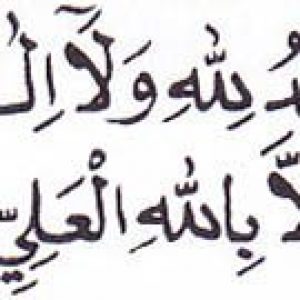 دُ لِلّٰهِ وَلَآ اِلٰ
لَّا بِاللّٰهِ الْعَلِيِّ